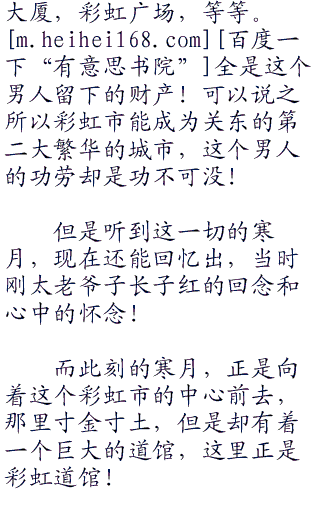 大厦，彩虹广场，等等。
[m.heihei168.com][百度一
下“有意思书院”]全是这个
男人留下的财产！可以说之
所以彩虹市能成为关东的第
二大繁华的城市，这个男人
的功劳却是功不可没！
但是听到这一切的寒
月，现在还能回忆出，当时
刚太老爷子长子红的回念和
心中的怀念！
而此刻的寒月，正是向
着这个彩虹市的中心前去，
那里寸金寸土，但是却有着
一个巨大的道馆，这里正是
彩虹道馆！